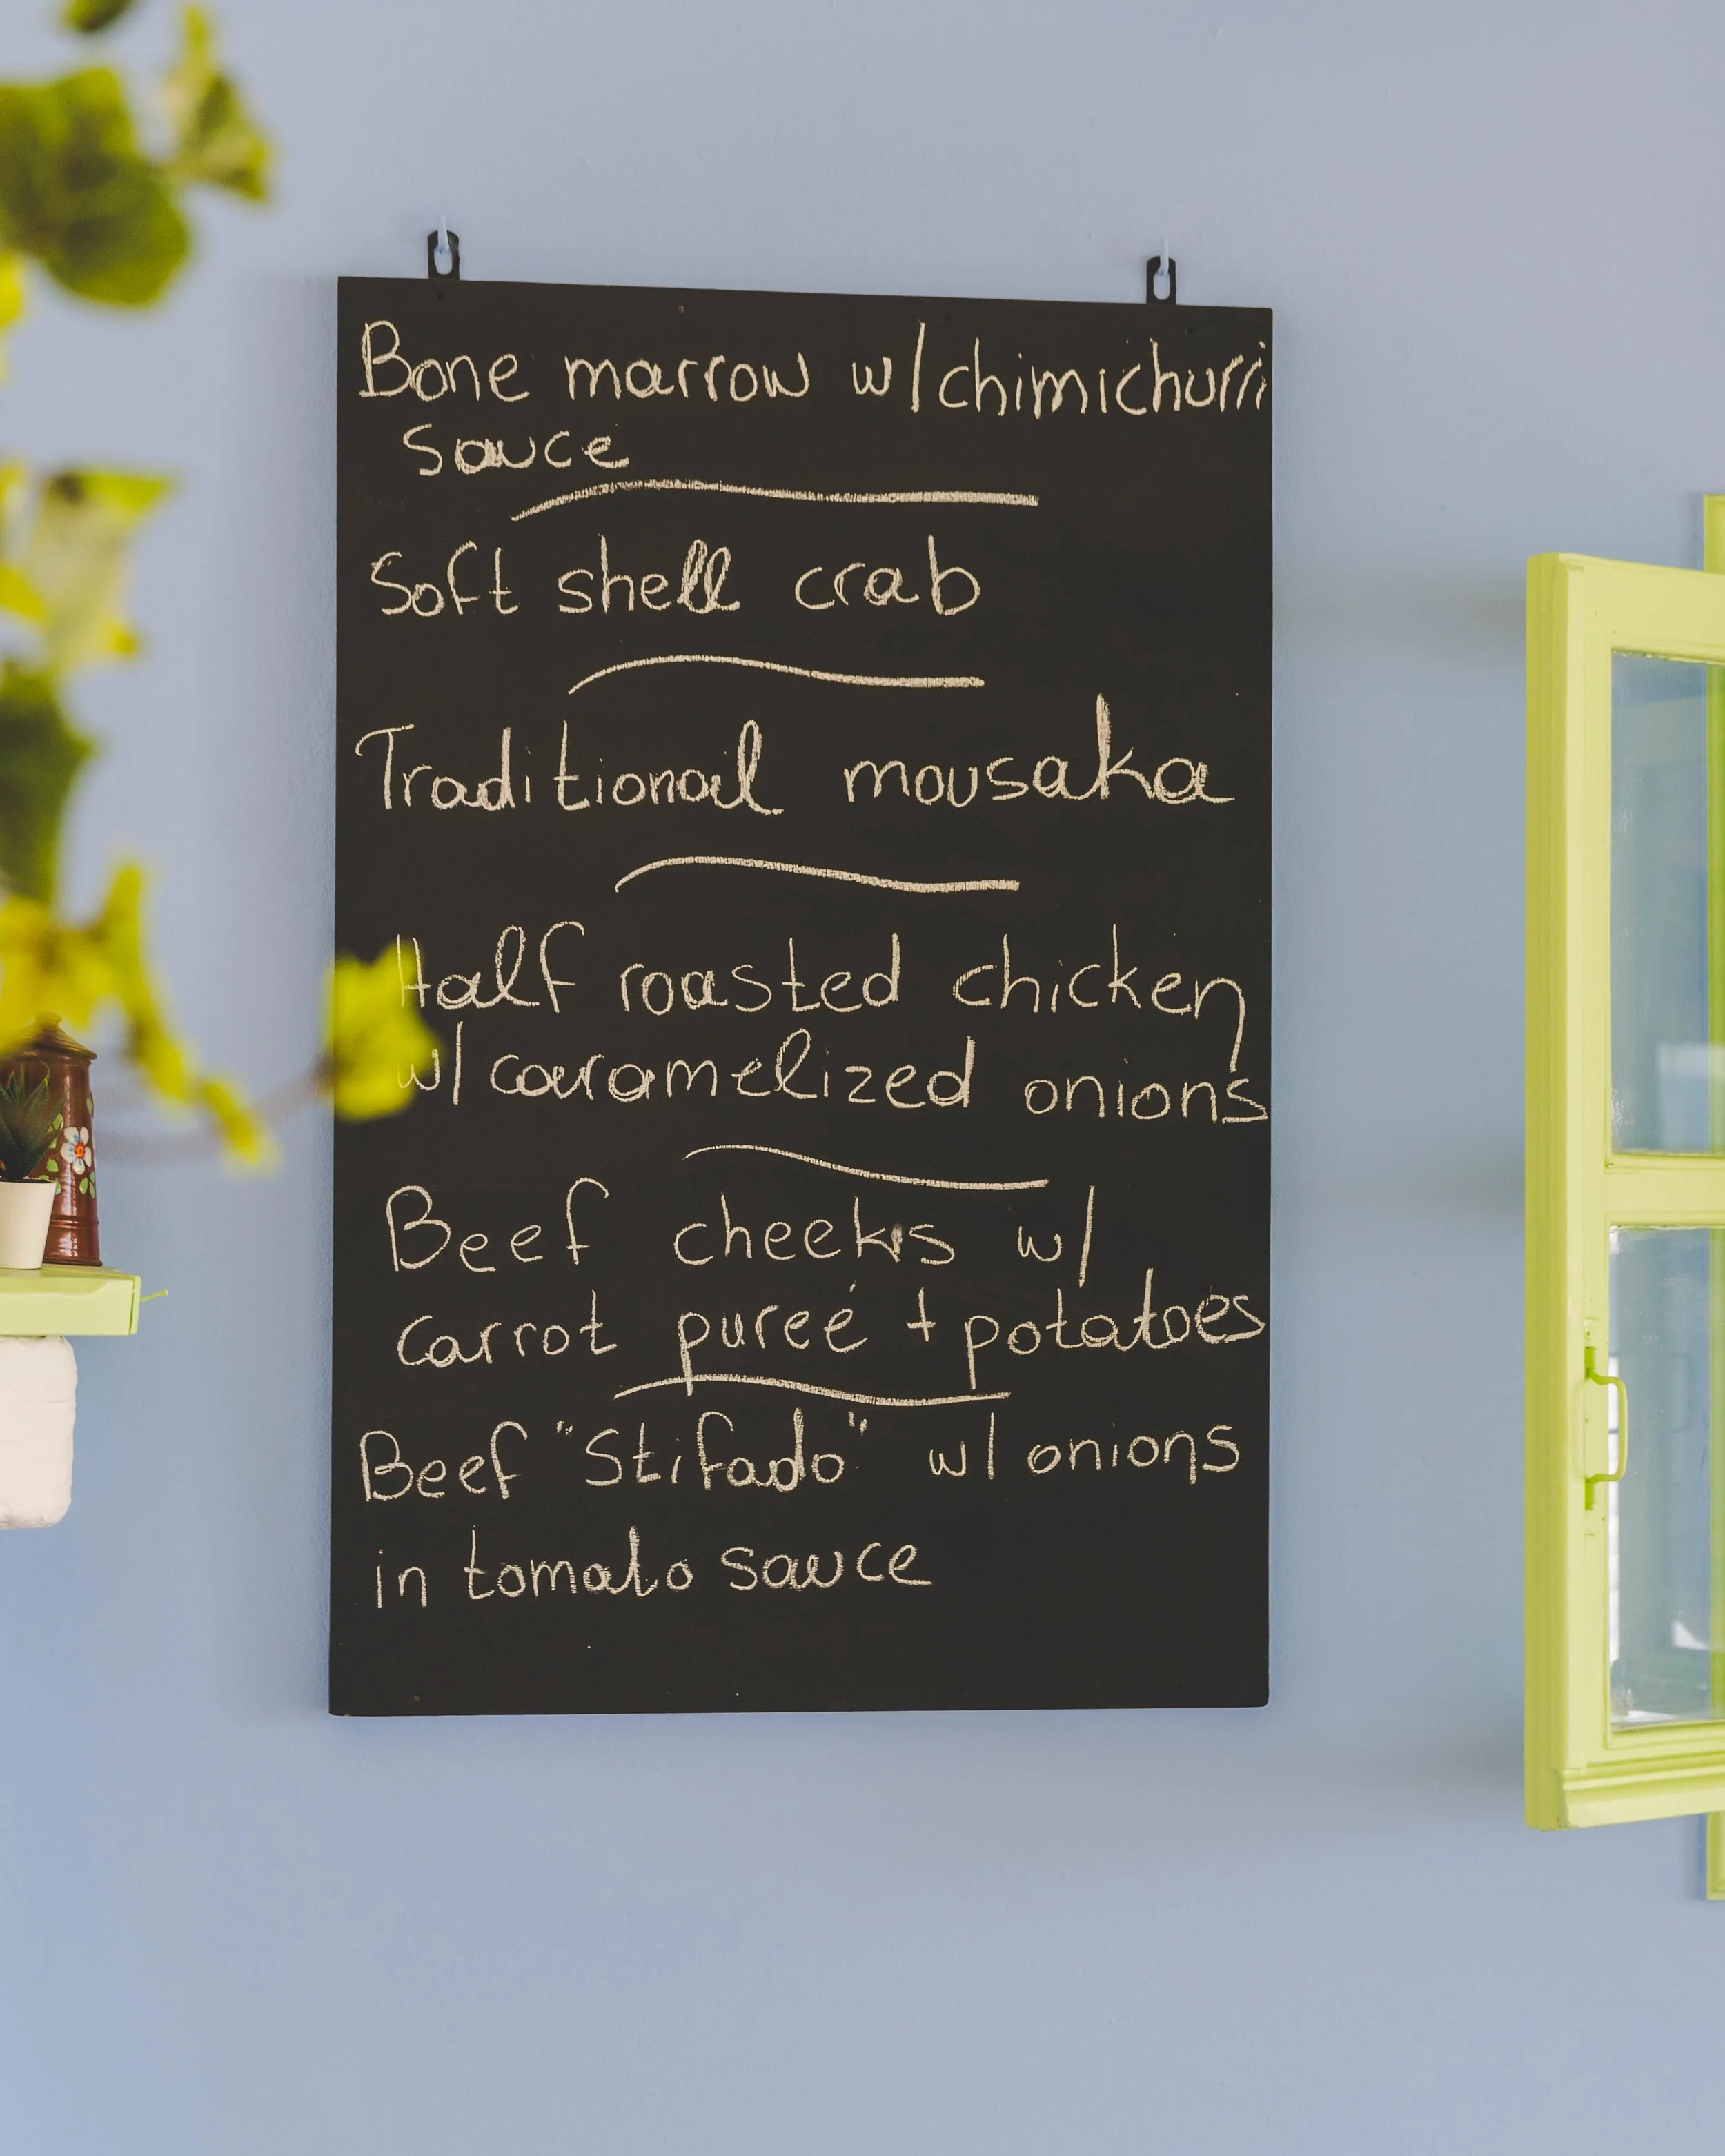 Bone marrow w/chimichurri
sauce
Soft shell crab
Traditional mousaka
Half roasted chicken
w/ caramelized onions
Beef cheeks w/
carrot pureé + potatoes
Beef "Stifado" w/ onions
in tomato sauce